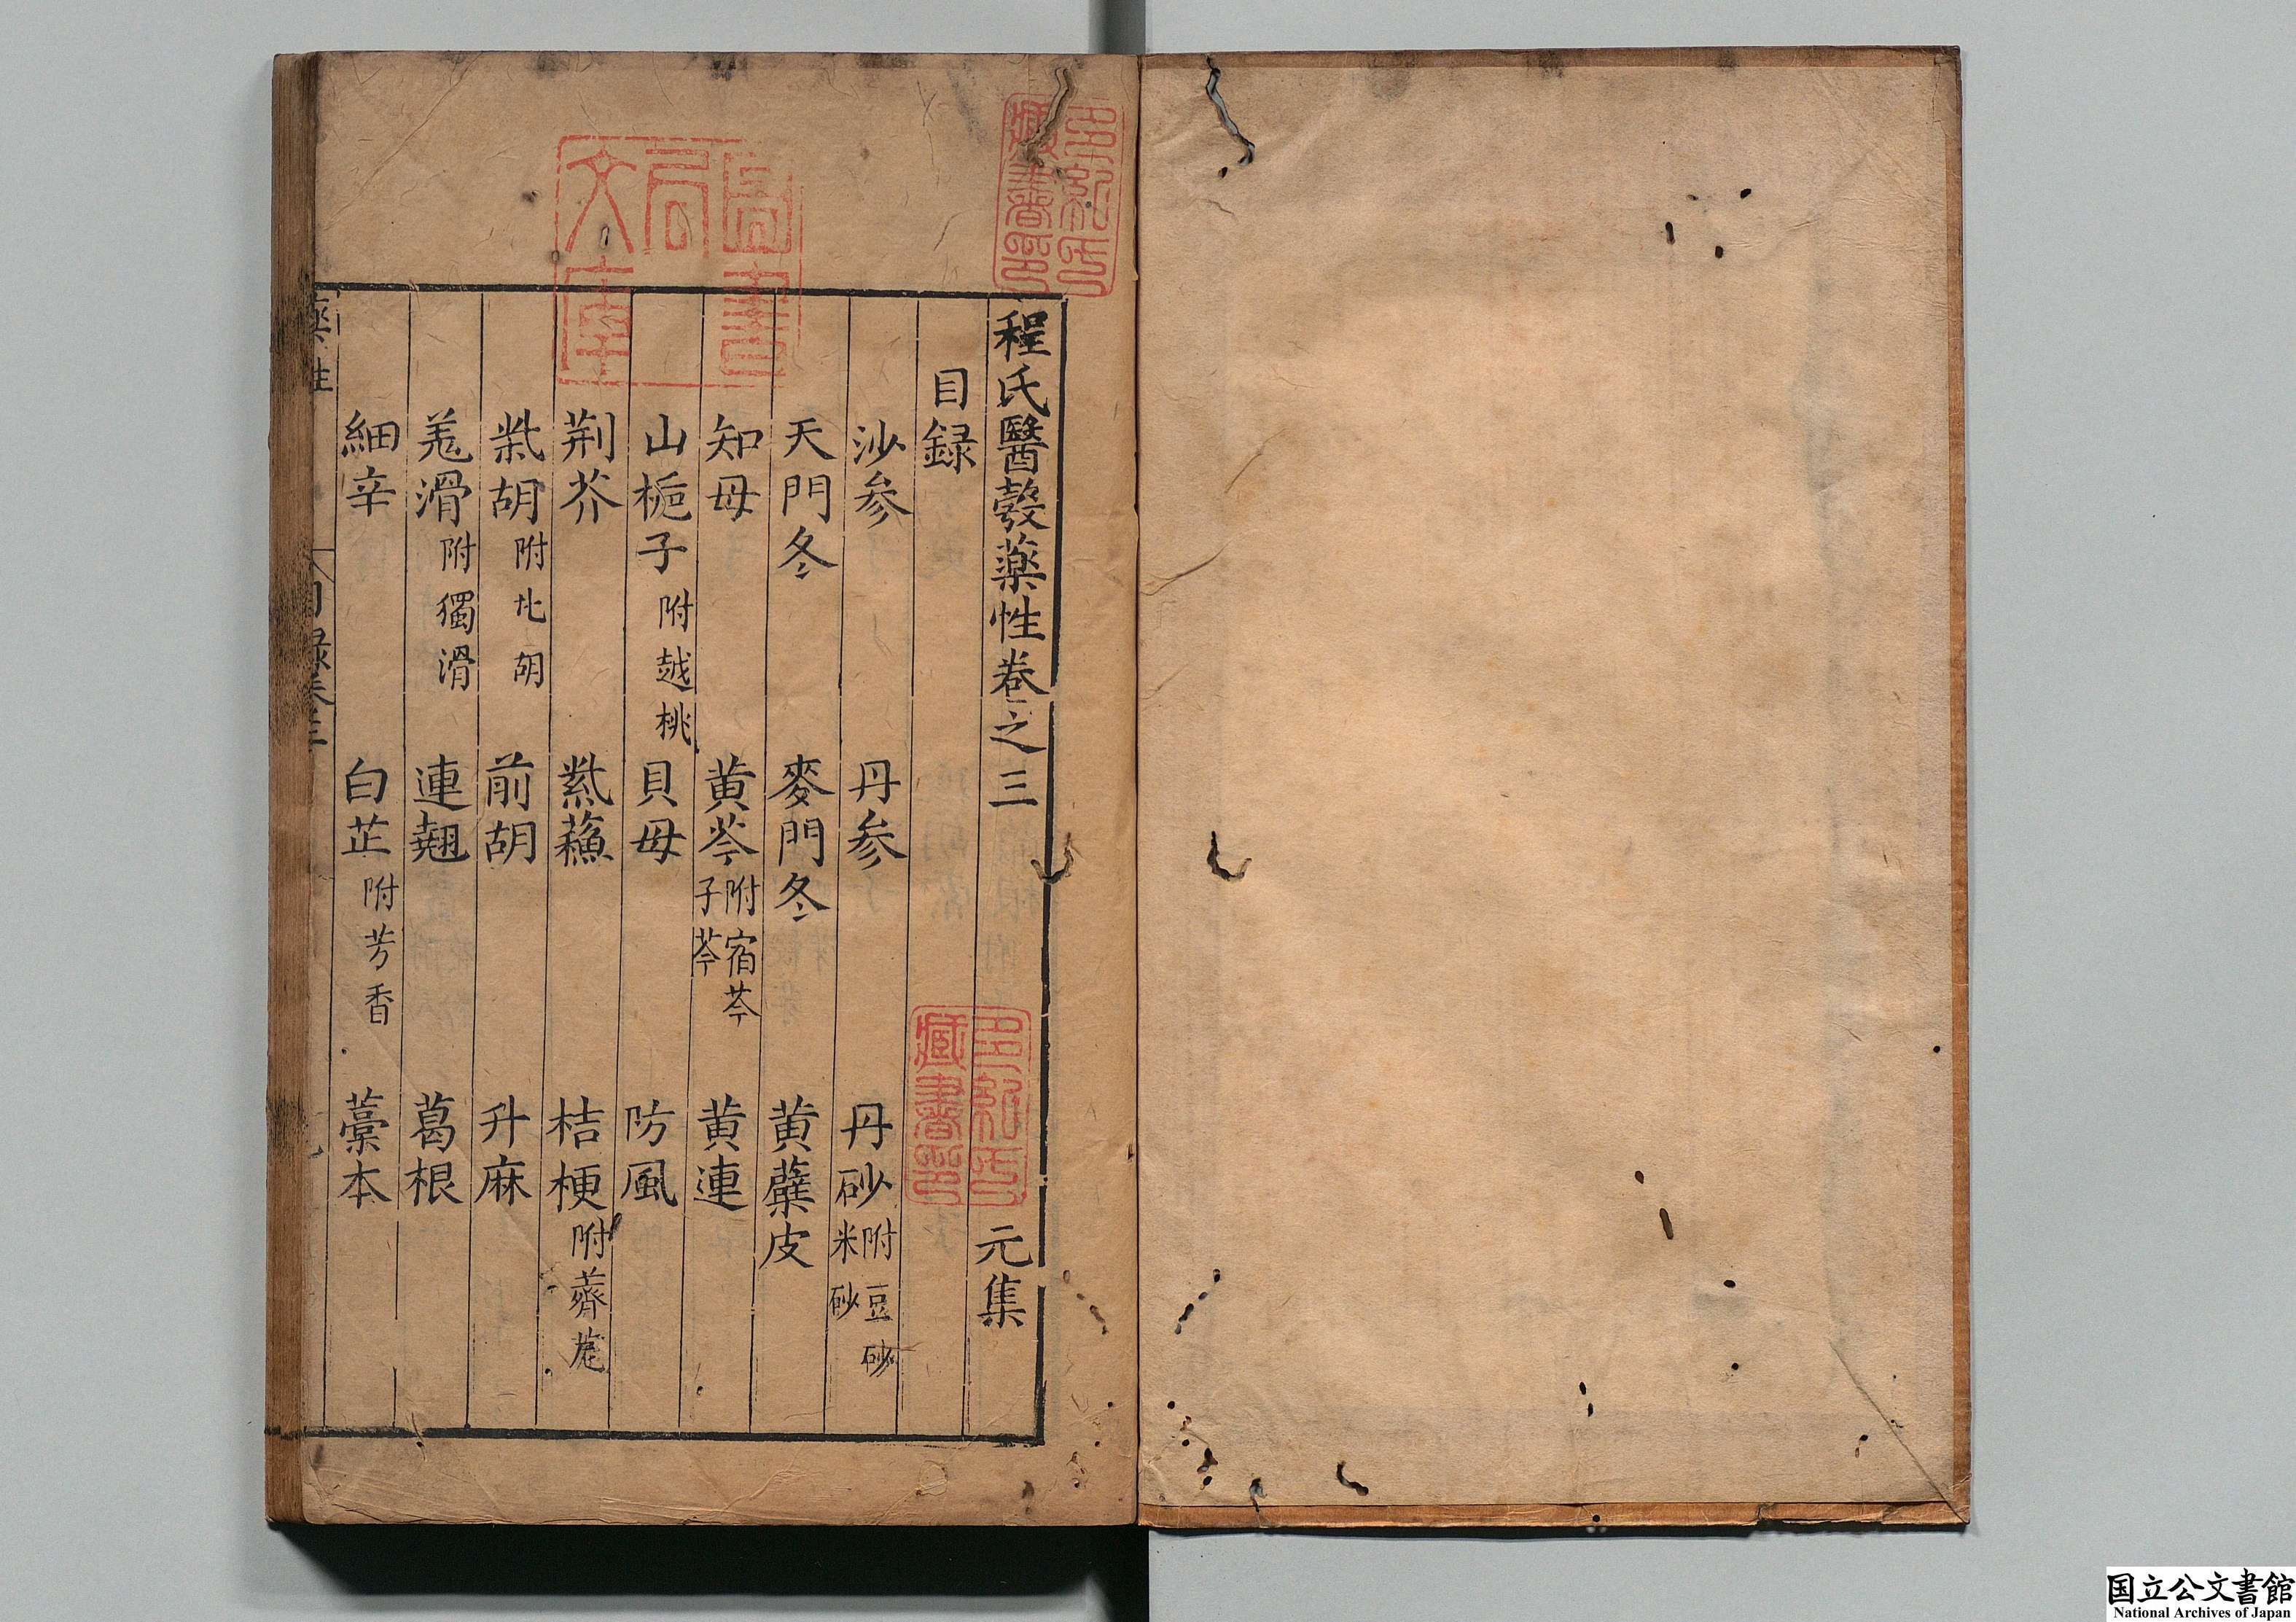 程氏醫彀藥性卷之三　元集
目録
沙参　丹参　丹砂附豆砂米砂
天門冬　麥門冬　黄蘗皮
知母　黄芩附宿芩子芩　黄連
山梔子附越桃　貝母　防風
荆芥　紫蘓　桔梗附薺苨
柴胡附北胡　前胡　升麻
羗滑附獨滑　連翹　葛根
細辛　白芷附芳香　藁本
藥性　目録卷三
多紀氏藏書印
圖書局文庫
多紀氏藏書印
国立公文書館
National Archives of Japan